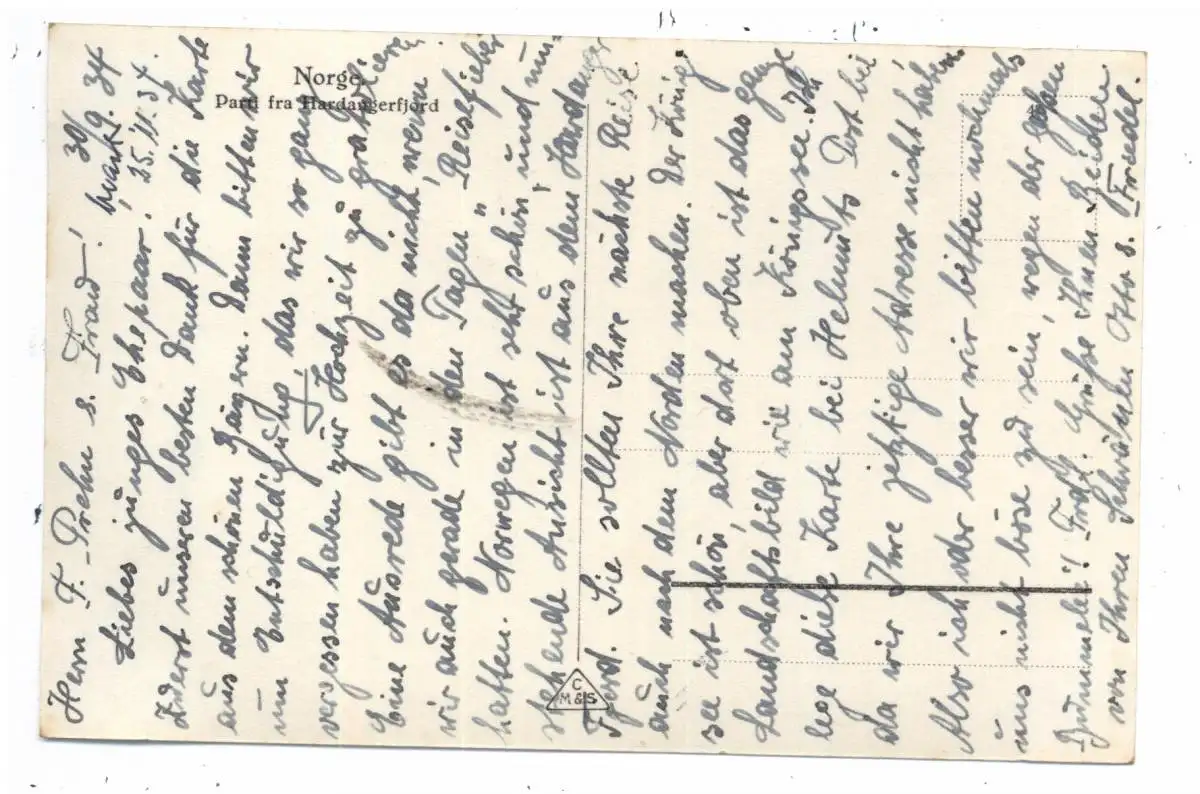 Norge.
Parti fra Hardangerfjord
Herrn F. Prehn s. Frau!
30/9. 34
25. 11. 34.
Liebes junges Ehepaar!
Zuerst unseren besten Dank für die Karte
aus dem schönen Bayern. Dann bitten wir
um Entschuldigung, das wir so ganz
vergessen haben zur Hochzeit zu gratulieren
Eine Ausrede gibt es da nicht, wenn
wir auch gerade in den Tagen "Reisefieber"
hatten. Norwegen ist sehr schön, und um-
stehende Ansicht ist aus dem Hardanger
Fjord. Sie sollten Ihre nächste Reise
auch nach dem Norden machen. Der König
see ist schön, aber dort oben ist das ganze
Landschaftsbild wie am Königssee. Ich
leg diese Karte bei Helmuts Post bei
da wir Ihre jetzige Adresse nicht haben.
Also ich oder besser wir bitten nochmals
uns nicht böse zu sein, wegen der
Grüße Ihnen Beiden
von Ihren Otto s. Friedel.
C
M&S